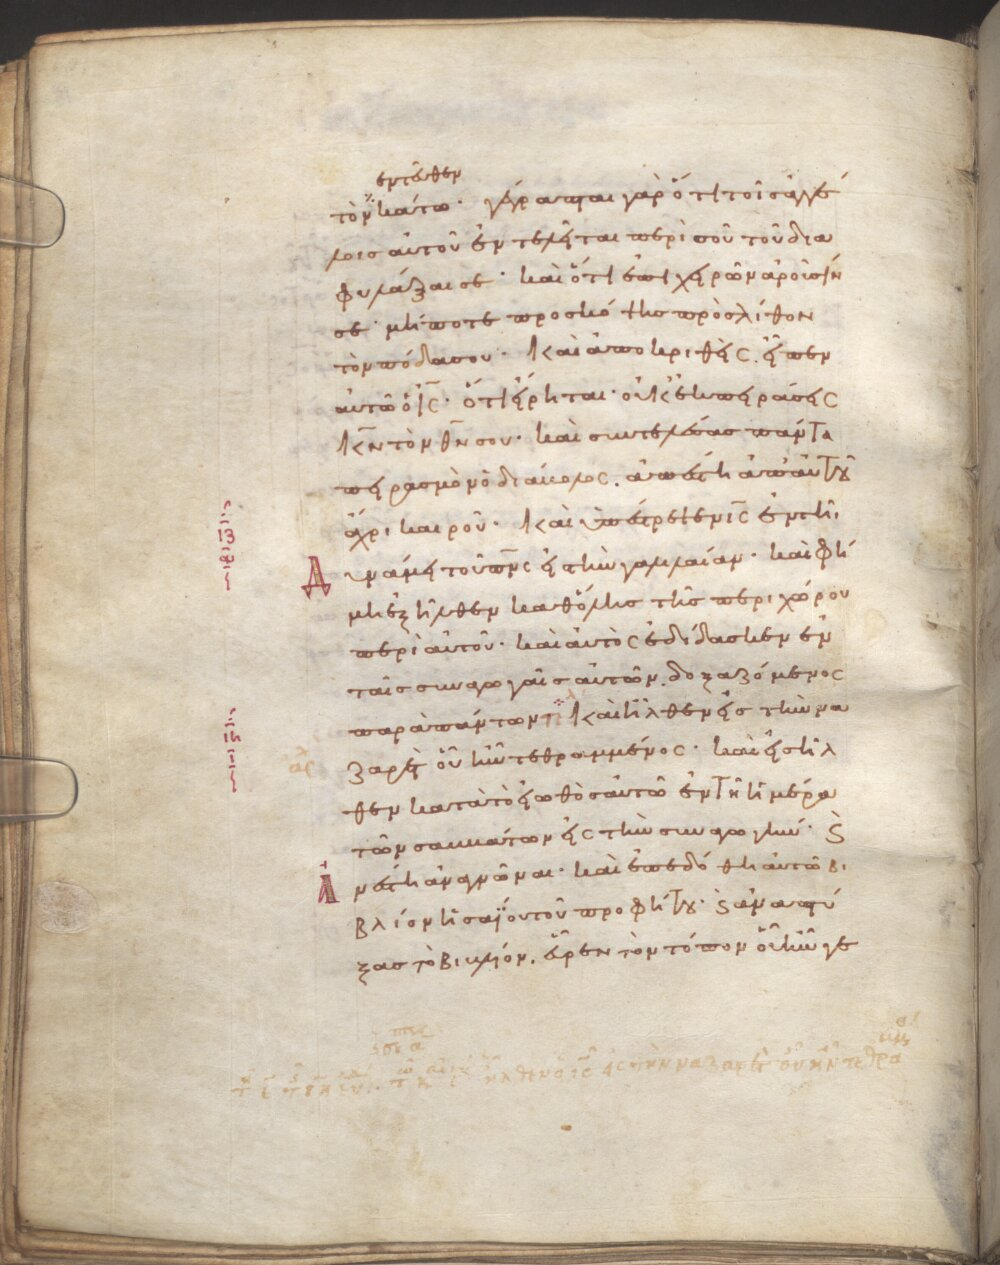 εντεῦθεν
τὸν κάτω· γέγραπται γὰρ ὅτι τοῖς ἀγγέ
λοις αὐτοῦ ἐντελεῖται περὶ σοῦ τοῦ δια
φυλάξαι σε· καὶ ὅτι ἐπὶ χειρῶν ἀροῦσίν
σε· μήποτε προσκόψης πρὸς λίθον
τὸν πόδα σου· καὶ ἀποκριθεὶς εἶπεν
αὐτῶ ὁ ις· ὅτι εἴρηται· οὐκ ἐκπειράσεις
κν τὸν θν σου· καὶ συντελέσας πάντα
πειρασμὸν ὁ διάβολος, ἀπέστη ἀπ' αὐτοῦ
ἄχρι καιροῦ· καὶ ὑπέστρεψεν ὁ ις ἐν τῆ
δυνάμει τοῦ πνς εἰς τὴν γαλιλαίαν· καὶ φή
μη ἐξῆλθεν καθ' ὅλης τῆς περιχώρου
περὶ αὐτοῦ· καὶ αὐτὸς ἐδίδασκεν ἐν
ταῖς συναγωγαῖς αὐτῶν, δοξαζόμενος
παρὰ πάντων· καὶ ἦλθεν εἰς τὴν να
ζαρὲτ οὗ ἦν τεθραμμένος· καὶ εἰσῆλ
θεν κατὰ τὸ εἰωθὸς αὐτῶ ἐν τῆ ἡμέρα
τῶν σαββάτων εἰς τὴν συναγωγήν· καὶ
ἀνέστη ἀναγνῶναι· καὶ ἐπεδόθη αὐτῶ βι
βλίον ἡσαΐου τοῦ προφήτου· καὶ ἀναπτύ
ξας τὸ βιβλίον, εὗρεν τὸν τόπον οὗ ἦν γε
ἦλθεν ὁ ις εἰς τὴν ναζαρὲτ οὗ ἦν τεθρα